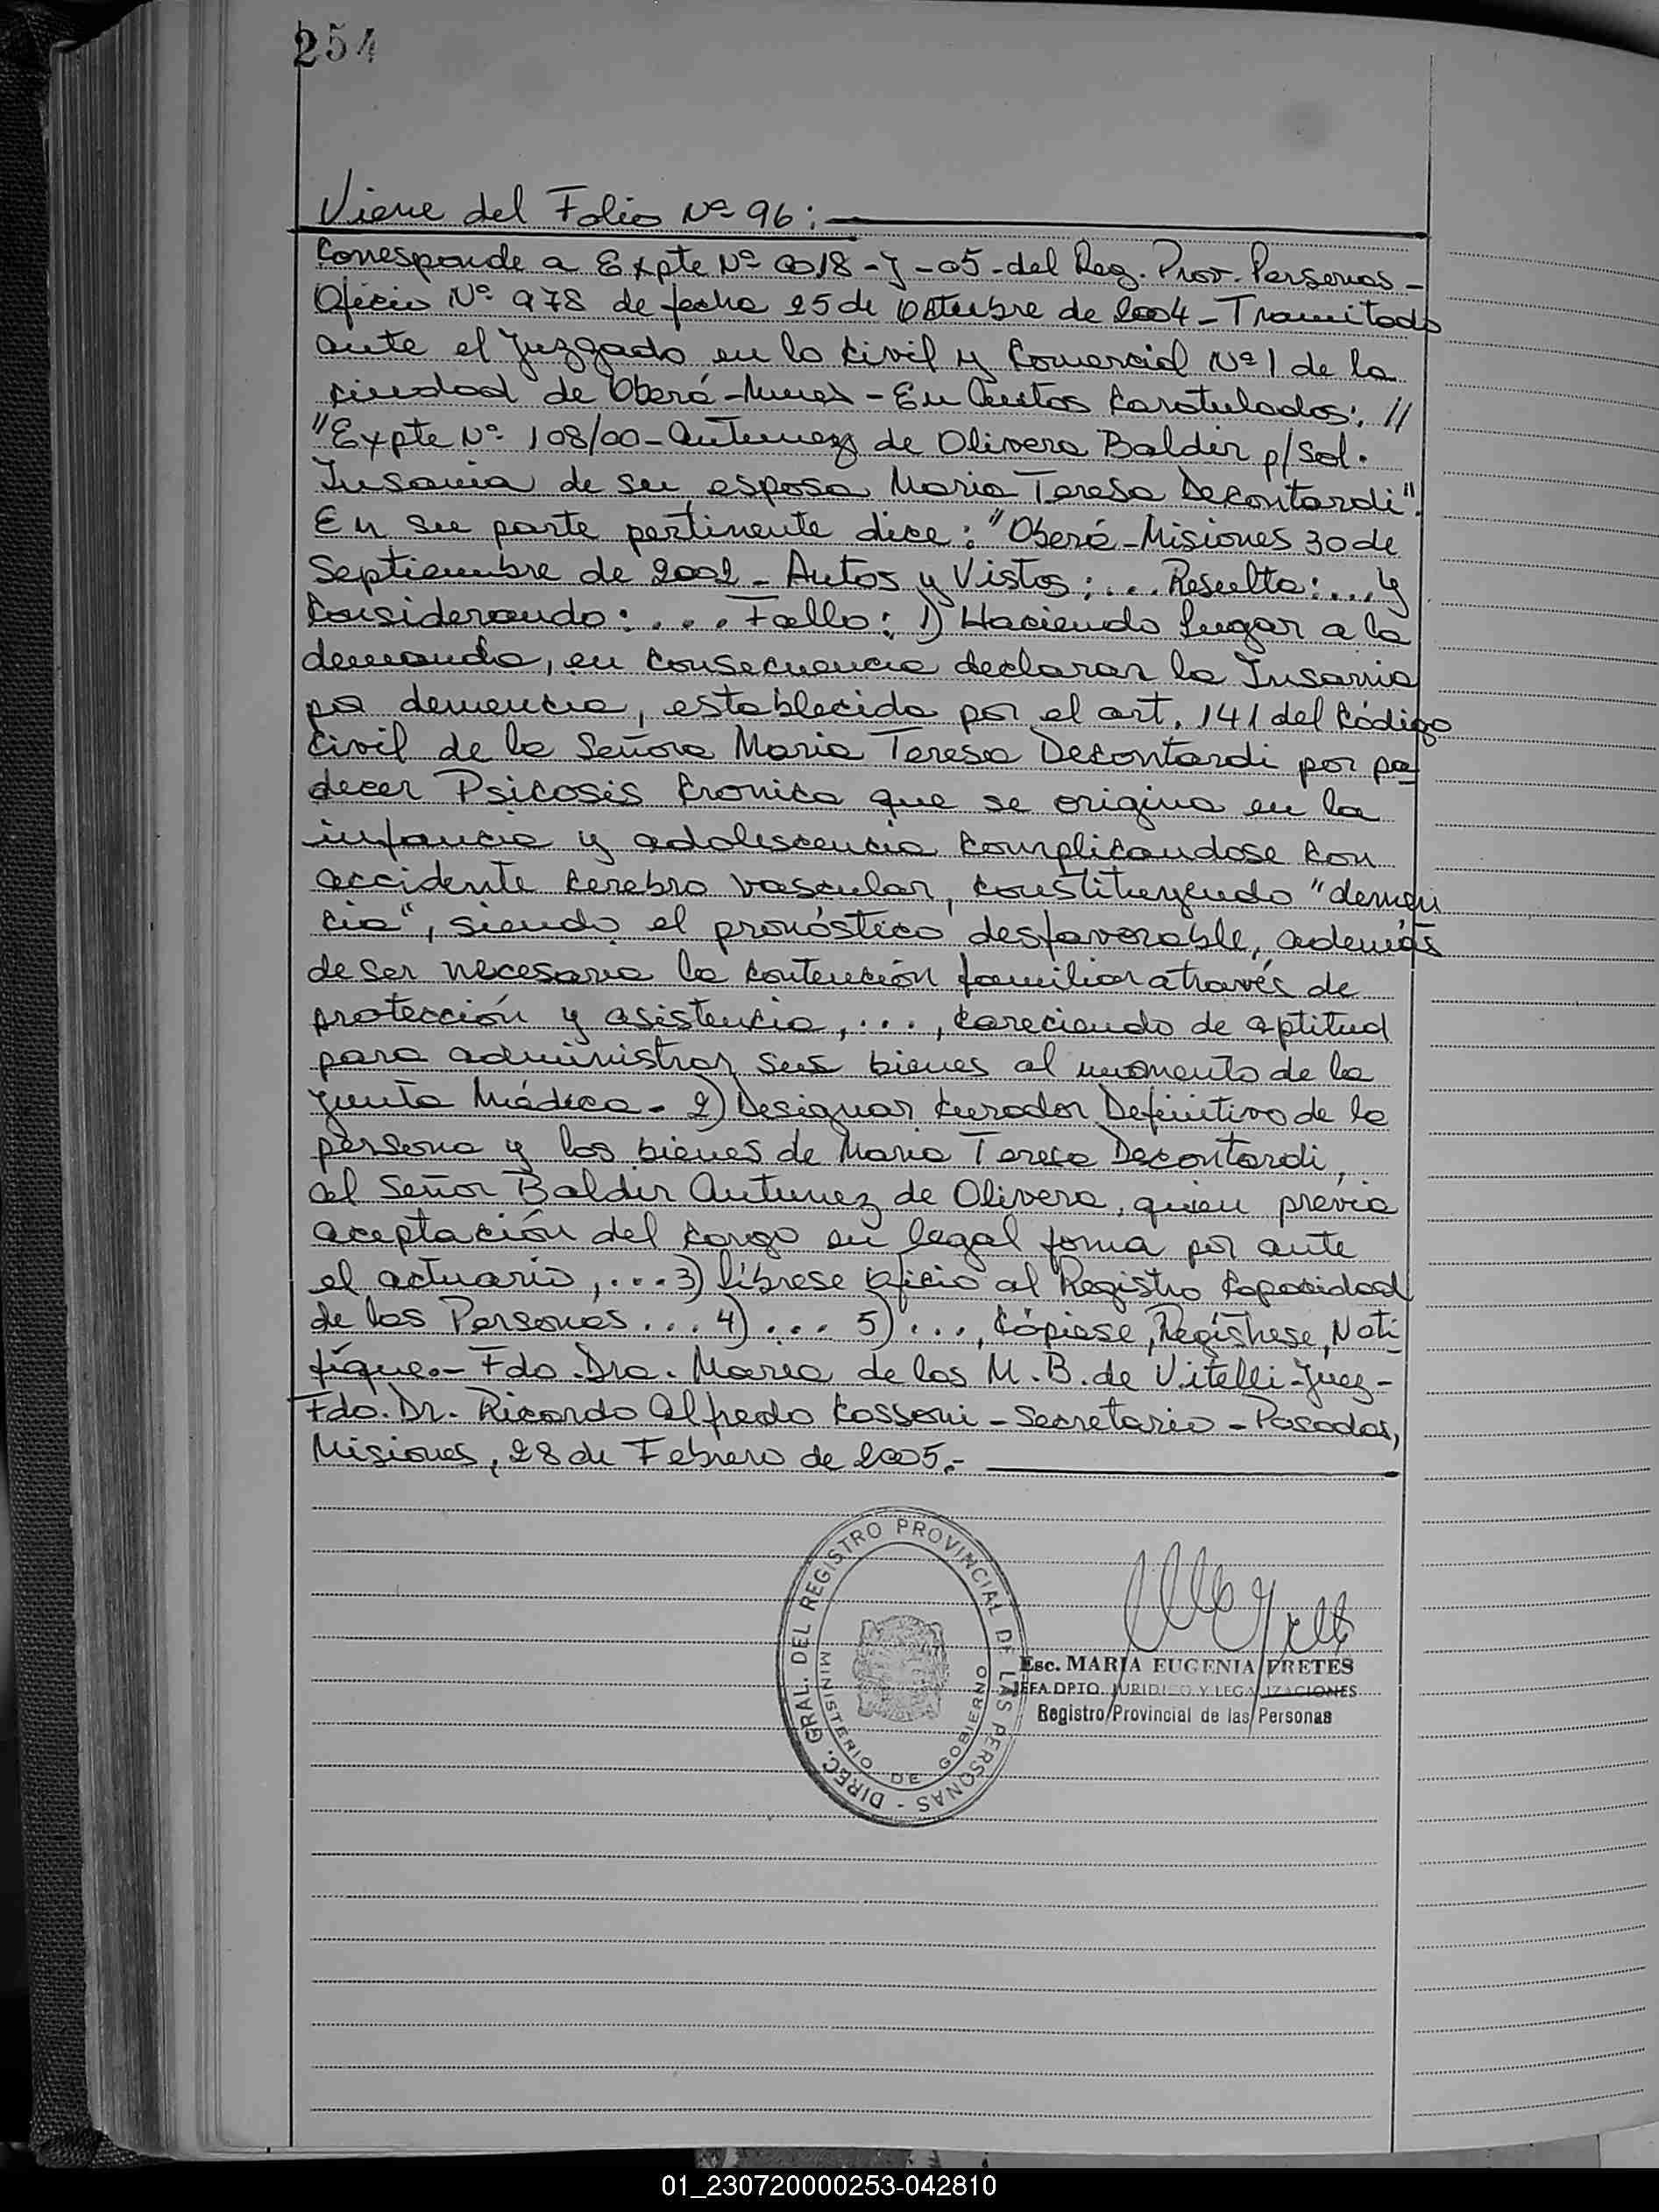 254
Viene del Folio Nº 96:
Corresponde a Expte Nº 0018-J-05-del Reg. Prov. Personas-
Oficio Nº 978 de fecha 25 de Octubre de 2004-Tramitado
ante el Juzgado en lo Civil y Comercial Nº 1 de la
ciudad de Oberá - - En Autos Caratulados: //
"Expte Nº 108/00-Antunez de Olivera Baldir p/Sol.
Insania de su esposa Maria Teresa Decontardi".
En su parte pertinente dice: "Oberá-Misiones 30 de
Septiembre de 2002- Autos y Vistos;... Resulta:... y
Considerando:.... Fallo: 1) Haciendo lugar a la
demanda, en consecuencia declarar la Insania
por demencia, establecida por el art. 141 del Código
Civil de la Señora Maria Teresa Decontardi por pa
decer Psicosis Cronica que se origina en la
infancia y adolescencia complicandose con
accidente cerebro vascular, constituyendo "demen
cia", siendo el pronóstico desfavorable, además
de ser necesaria la contención familiar através de
protección y asistencia,..., careciendo de aptitud
para administrar sus bienes al momento de la
Junta Médica- 2) Designar Curador Definitivo de la
persona y los bienes de Maria Teresa Decontardi,
al Señor Baldir Antunez de Olivera, quien previa
aceptación del cargo en legal forma por ante
el actuario,...3) líbrese oficio al Registro Capacidad
de las Personas... 4)... 5)..., Cópiese, Regístrese, Noti
fíque.- Fdo. Dra. Maria de los M. B. de Vitelli-Juez-
Fdo. Dr. Ricardo Alfredo Cassoni-Secretario-Posadas,
Misiones, 28 de Febrero de 2005.-
DIREC. GRAL. DEL REGISTRO PROVINCIAL DE LAS PERSONAS -
MINISTERIO DE GOBIERNO
Esc. MARIA EUGENIA FRETES
JEFA DPTO. JURIDICO Y LEGALIZACIONES
Registro Provincial de las Personas
01_230720000253-042810